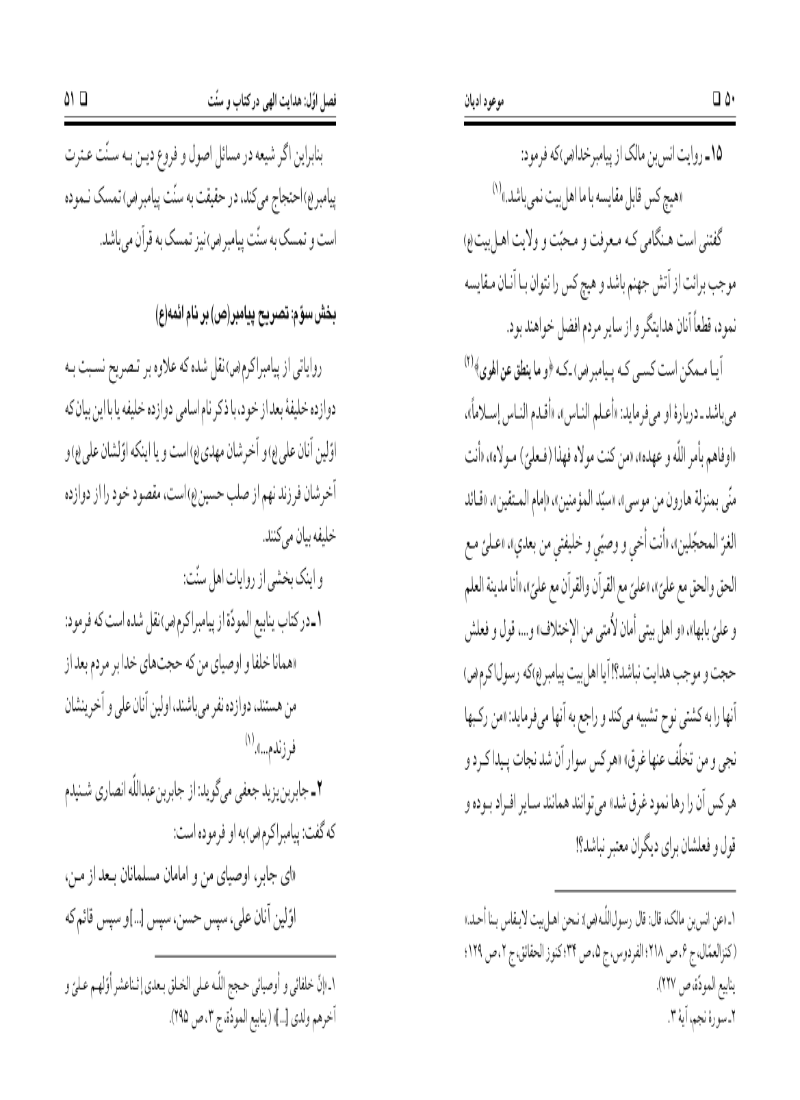 ۵۰ ❑ موعود ادیان
۱۵ـ روایت انس‌بن مالک از پیامبرخدا(ص)که فرمود:
«هیچ کس قابل مقایسه با ما اهل‌بیت نمی‌باشد.»(۱)
گفتنی است هـنگامی کـه مـعرفت و مـحبّت و ولایت اهـل‌بیت(ع)
موجب برائت از آتش جهنم باشد و هیچ کس را نتوان بـا آنـان مـقایسه
نمود، قطعاً آنان هدایتگر و از سایر مردم افضل خواهند بود.
آیـا مـمکن است کسـی کـه پـیامبر(ص) ـ کـه ﴿و ما ینطق عن الهوی﴾(۲)
می‌باشد ـ دربارۀ او می‌فرماید: «أعـلم النـاس»، «أقـدم النـاس إسـلاماً»،
«اوفاهم بأمر اللّه و عهده»، «من کنت مولاه فهذا (فـعلیّ) مـولاه»، «أنت
منّی بمنزلة هارون من موسی»، «سیّد المؤمنین»، «إمام المـتقین»، «قـائد
الغرّ المحجّلین»، «أنت أخي و وصیّي و خلیفتي من بعدي»، «عـلیّ مـع
الحق والحق مع علیّ»، «علیّ مع القرآن والقرآن مع علیّ»، «أنا مدینة العلم
و علیّ بابها»، «و اهل بیتی أمان لأُمتی من الإختلاف» و...، قول و فعلش
حجت و موجب هدایت نباشد؟! آیا اهل‌بیت پیامبر(ع)که رسول‌اکرم(ص)
آنها را به کشتی نوح تشبیه می‌کند و راجع به آنها می‌فرماید: «من رکـبها
نجی و من تخلّف عنها غرق» «هر کس سوار آن شد نجات پـیدا کـرد و
هر کس آن را رها نمود غرق شد» می‌توانند همانند سـایر افـراد بـوده و
قول و فعلشان برای دیگران معتبر نباشد؟!
۱ـ «عن انس‌بن مالک، قال: قال رسول‌اللّـه(ص): نـحن اهـل‌بیت لایـقاس بـنا أحـد.»
(کنزالعمّال، ج ۶، ص ۲۱۸؛ الفردوس، ج ۵، ص ۳۴؛ کنوز الحقائق، ج ۲، ص ۱۲۹؛
ینابیع المودّة، ص ۲۲۷).
۲ـ سورۀ نجم، آیۀ ۳.
فصل اوّل: هدایت الهی در کتاب و سنّت ❑ ۵۱
بنابراین اگر شیعه در مسائل اصول و فروع دیـن بـه سـنّت عـترت
پیامبر(ع) احتجاج می‌کند، در حقیقت به سنّت پیامبر(ص) تمسک نـموده
است و تمسک به سنّت پیامبر(ص)نیز تمسک به قرآن می‌باشد.
بخش سوّم: تصریح پیامبر(ص) بر نام ائمه(ع)
روایاتی از پیامبراکرم(ص)نقل شده که علاوه بر تـصریح نسـبت بـه
دوازده خلیفۀ بعد از خود، با ذکر نام اسامی دوازده خلیفه یا با این بیان که
اوّلین آنان علی(ع) و آخرشان مهدی(ع) است و یا اینکه اوّلشان علی(ع) و
آخرشان فرزند نهم از صلب حسین(ع) است، مقصود خود را از دوازده
خلیفه بیان می‌کنند.
و اینک بخشی از روایات اهل سنّت:
۱ـ در کتاب ینابیع المودّة از پیامبراکرم(ص)نقل شده است که فرمود:
«همانا خلفا و اوصیای من که حجت‌های خدا بر مردم بعد از
من هستند، دوازده نفر می‌باشند، اولین آنان علی و آخرینشان
فرزندم...».(۱)
۲ـ جابربن‌یزید جعفی می‌گوید: از جابربن‌عبداللّه انصاری شـنیدم
که گفت: پیامبراکرم(ص)به او فرموده است:
«ای جابر، اوصیای من و امامان مسلمانان بـعد از مـن،
اوّلین آنان علی، سپس حسن، سپس [...]و سپس قائم که
۱ـ «إنّ خلفائی و أوصیائی حـجج اللّـه عـلی الخـلق بـعدی إثـناعشر أوّلهـم عـلیّ و
آخرهم ولدی [...]» ( ینابیع المودّة، ج ۳، ص ۲۹۵).